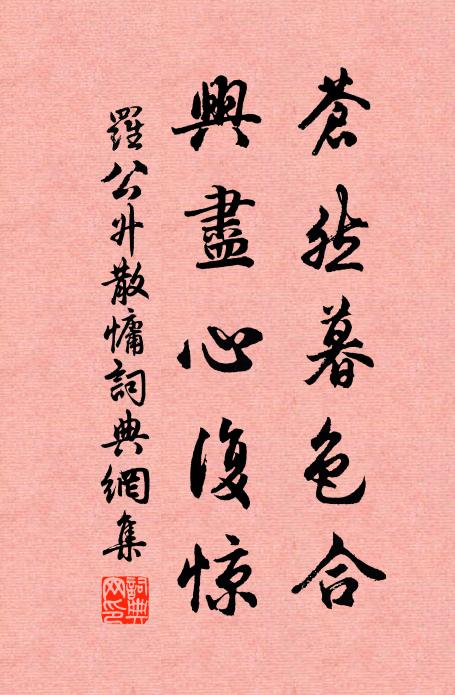 蒼然暮色合
興盡心復惊
羅公升散慵詞典網集
詞典網印